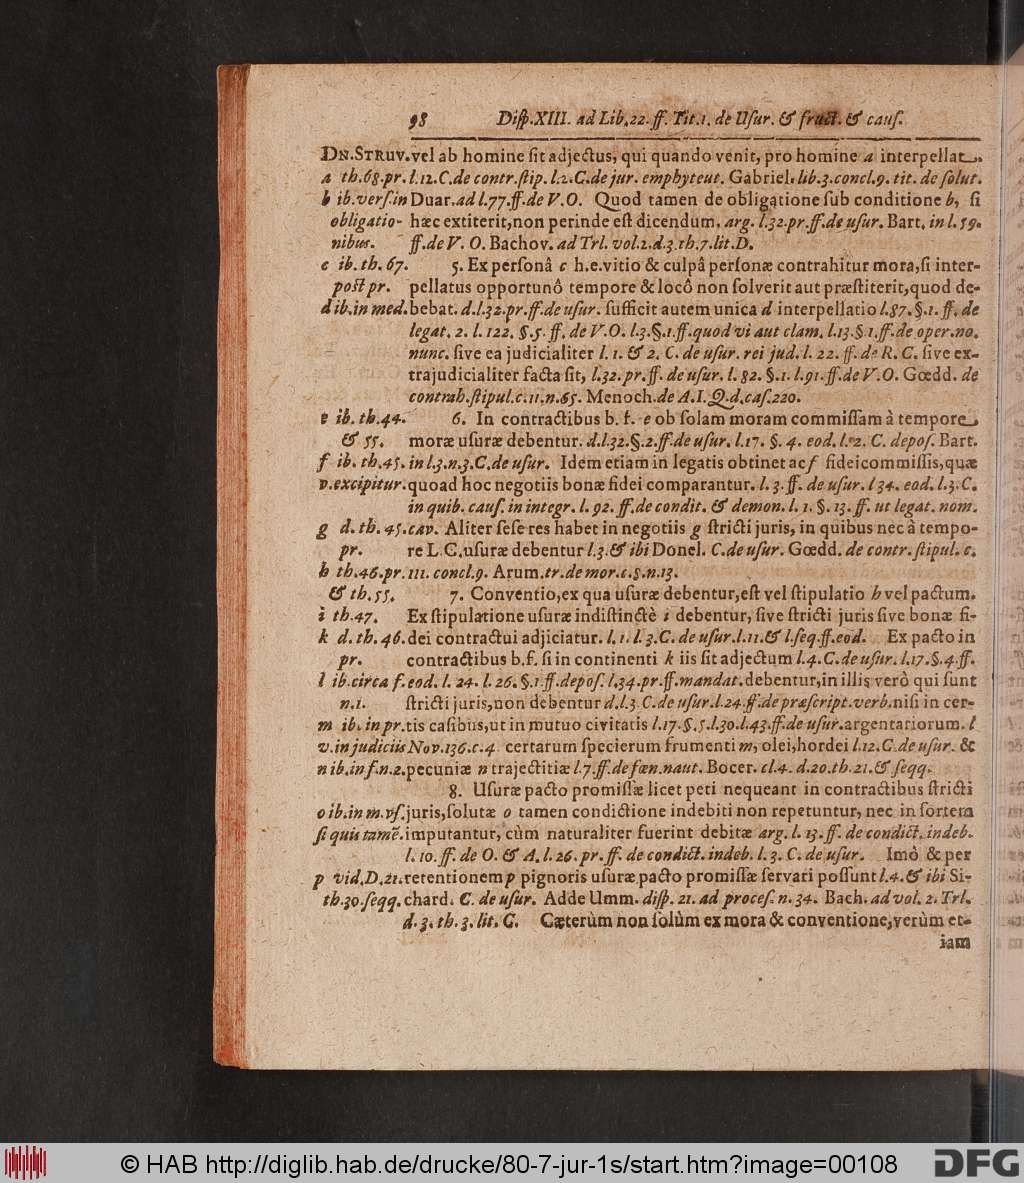 98 Disp. XIII. ad Lib. 22. ff. Tit. 1. de Usur. & fruct. & caus.
DN. STRUV. vel ab homine sit adjectus, qui quando venit, pro homine a interpellat.
a th. 68. pr. l. 12. C. de contr. stip. l. 2. C. de jur. emphyteut. Gabriel. lib. 3. concl. 9. tit. de solut.
b ib. vers. in Duar. ad l. 77. ff. de V. O. Quod tamen de obligatione sub conditione b, si
obligatio- hæc extiterit, non perinde est dicendum. arg. l. 32. pr. ff. de usur. Bart. in l. 59.
nibus. ff. de V. O. Bachov. ad Trl. vol. 2. d. 3. th. 7. lit. D.
c ib. th. 67. 5. Ex personâ c h. e. vitio & culpâ personæ contrahitur mora, si inter-
post pr. pellatus opportunô tempore & locô non solverit aut præstiterit, quod de-
d ib. in med. bebat. d. l. 32. pr. ff. de usur. sufficit autem unica d interpellatio l. 87. §. 1. ff. de
legat. 2. l. 122. §. 5. ff. de V. O. l. 3. §. 1. ff. quod vi aut clam. l. 13. §. 1. ff. de oper. no.
nunc. sive ea judicialiter l. 1. & 2. C. de usur. rei jud. l. 22. ff. de R. C. sive ex-
trajudicialiter facta sit, l. 32. pr. ff. de usur. l. 82. §. 1. l. 91. ff. de V. O. Gœdd. de
contrah. stipul. c. 11. n. 65. Menoch. de A. I. Q. d. cas. 220.
e ib. th. 44. 6. In contractibus b. f. e ob solam moram commissam à tempore
& 55. moræ usuræ debentur. d. l. 32. §. 2. ff. de usur. l. 17. §. 4. eod. l. 2. C. depos. Bart.
f ib. th. 45. in l. 3. n. 3. C. de usur. Idem etiam in legatis obtinet ac f fideicommissis, quæ
v. excipitur. quoad hoc negotiis bonæ fidei comparantur. l. 3. ff. de usur. l 34. eod. l. 3. C.
in quib. caus. in integr. l. 92. ff. de condit. & demon. l. 1. §. 13. ff. ut legat. nom.
g d. th. 45. cav. Aliter sese res habet in negotiis g stricti juris, in quibus nec à tempo-
pr. re L. C. usuræ debentur l. 3. & ibi Donel. C. de usur. Gœdd. de contr. stipul. c.
h th. 46. pr. 111. concl. 9. Arum. tr. de mor. c. 5. n. 13.
& th. 55. 7. Conventio, ex qua usuræ debentur, est vel stipulatio h vel pactum.
i th. 47. Ex stipulatione usuræ indistinctè i debentur, sive stricti juris sive bonæ fi-
k d. th. 46. dei contractui adjiciatur. l. 1. l. 3. C. de usur. l. 11. & l. seq. ff. eod. Ex pacto in
pr. contractibus b. f. si in continenti k iis sit adjectum l. 4. C. de usur. l. 17. §. 4. ff.
l ib. circa f. eod. l. 24. l. 26. §. 1. ff. depos. l. 34. pr. ff. mandat. debentur, in illis verò qui sunt
n. 1. stricti juris, non debentur d. l. 3 C. de usur. l. 24. ff. de præscript. verb. nisi in cer-
m ib. in pr. tis casibus, ut in mutuo civitatis l. 17. §. 5. l. 30. l. 43. ff. de usur. argentariorum. l
v. in judiciis Nov. 136. c. 4. certarum specierum frumenti m, olei, hordei l. 12. C. de usur. &
n ib. in f. n. 2. pecuniæ n trajectitiæ l. 7. ff. de fœn. naut. Bocer. cl. 4. d. 20. th. 21. & seqq.
8. Usuræ pacto promissæ licet peti nequeant in contractibus stricti
o ib. in m. vs. juris, solutæ o tamen condictione indebiti non repetuntur, nec in sortem
si quis tamẽ. imputantur, cùm naturaliter fuerint debitæ arg. l. 13. ff. de condict. indeb.
l. 10. ff. de O. & A. l. 26. pr. ff. de condict. indeb. l. 3. C. de usur. Imò & per
p vid. D. 21. retentionem p pignoris usuræ pacto promissæ servari possunt l. 4. & ibi Si-
th. 30. seqq. chard. C. de usur. Adde Umm. disp. 21. ad proces. n. 34. Bach. ad vol. 2. Trl.
d. 3. th. 3. lit. C. Cæterùm non solùm ex mora & conventione, verùm et-
iam
© HAB http://diglib.hab.de/drucke/80-7-jur-1s/start.htm?image=00108
DFG